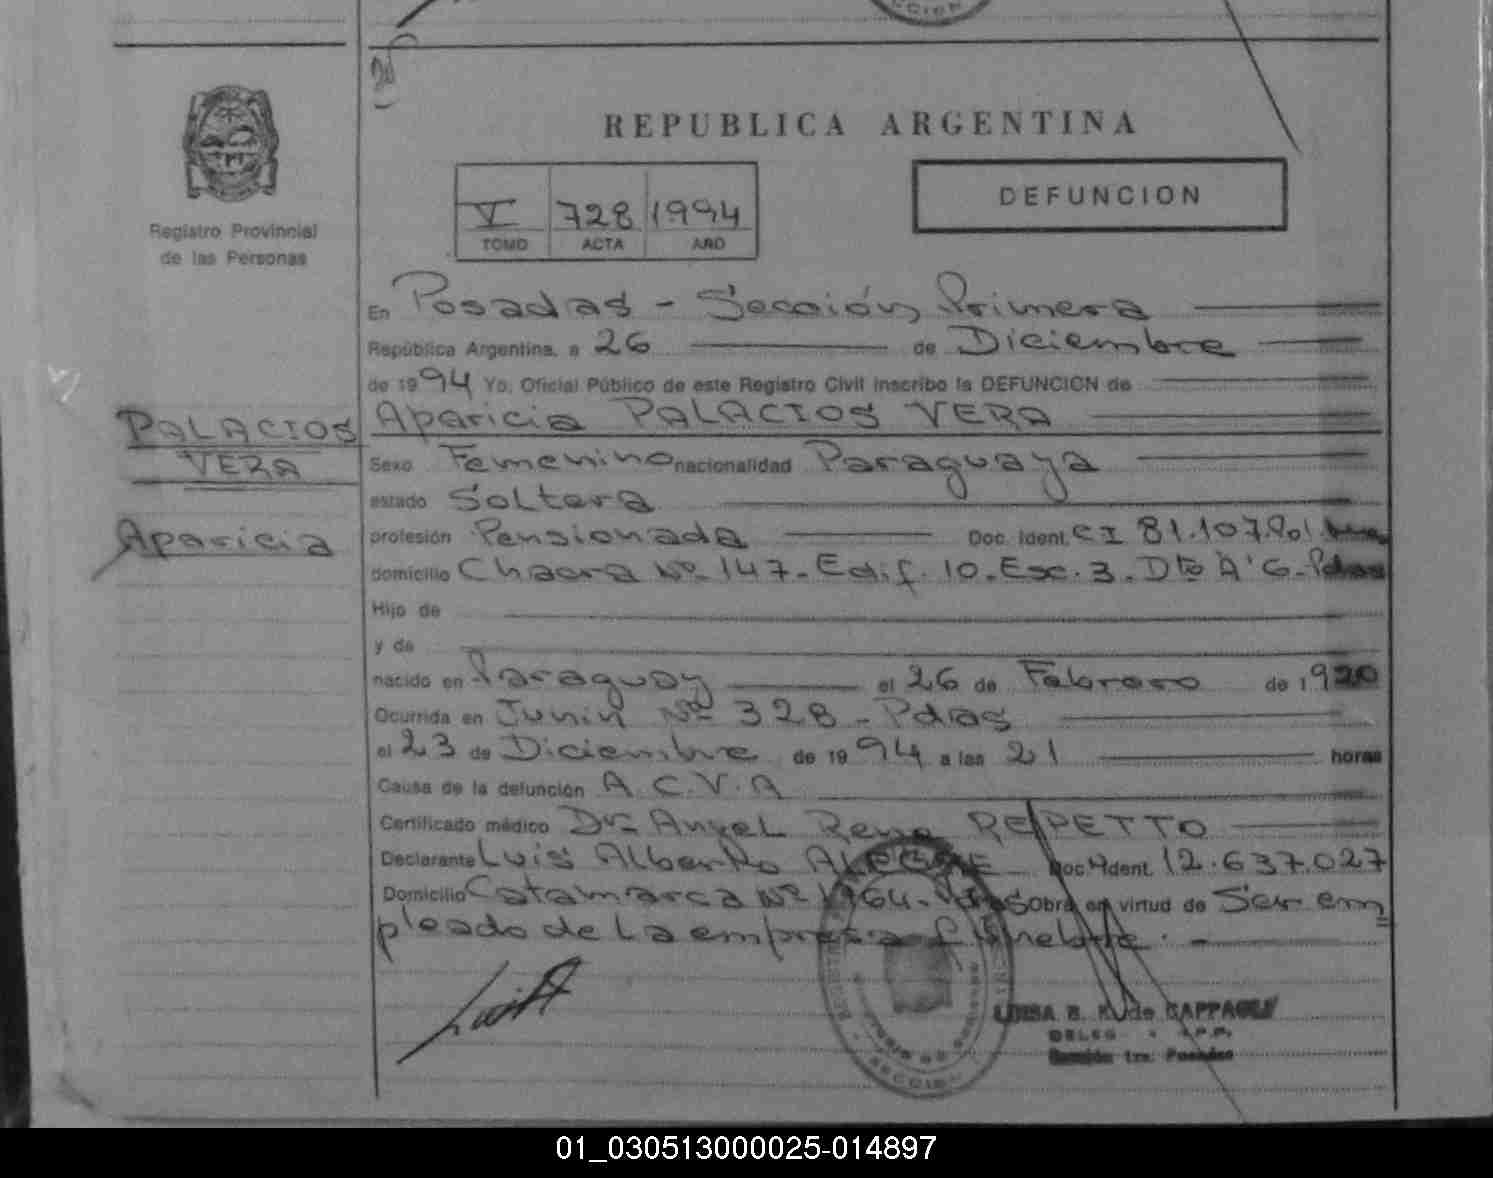 REPUBLICA ARGENTINA
V 728 1994
TOMO ACTA AÑO
DEFUNCION
Registro Provincial
de las Personas
En Posadas - Sección Primera
República Argentina, a 26 de Diciembre
de 1994 Yo, Oficial Público de este Registro Civil inscribo la DEFUNCION de
PALACIOS
VERA
Aparicia
Aparicia PALACIOS VERA
Sexo Femenino nacionalidad Paraguaya
estado Soltera
profesión Pensionada Doc. Ident. CI 81.107.801
domicilio Chacra Nº 147. Edif. 10. Esc. 3. Dto A' G. Pdas
Hijo de
y de
nacido en Paraguay el 26 de Febrero de 1920
Ocurrida en Junin Nº 328 - Pdas
el 23 de Diciembre de 1994 a las 21 horas
Causa de la defunción A.C.V.A
Certificado médico Dr. Angel Rene REPETTO
Declarante Luis Alberto Doc. Ident. 12.637.027
Domicilio Catamarca Nº 1964. Pdas Obra en virtud de Ser em
pleado de la empresa funebre. -
LUISA B. K. de CAPPAGLI
Sección 1ra. Posadas
SECCION
01_030513000025-014897